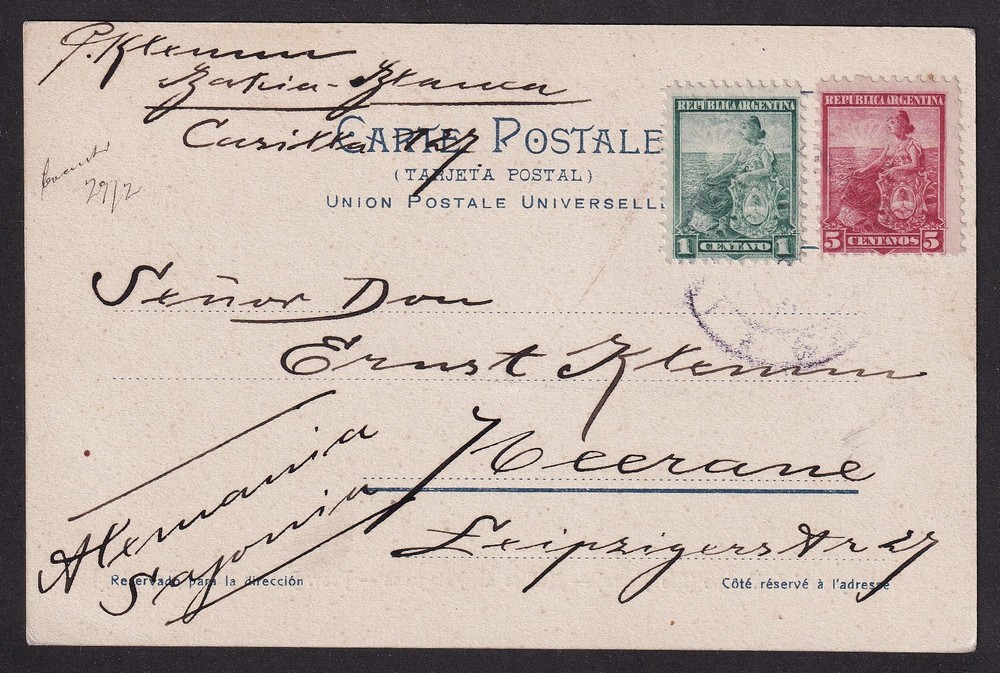 P. Klemm
Bahia-Blanca
Casilla 127
CARTE POSTALE
(TARJETA POSTAL)
UNION POSTALE UNIVERSELLE
29/2
REPUBLICA ARGENTINA
1 CENTAVO 1
REPUBLICA ARGENTINA
5 CENTAVOS 5
Señor Don
Ernst Klemm
Meerane
Leipzigerstr 27
Alemania
Sajonia
Reservado para la dirección
Côté réservé à l'adresse